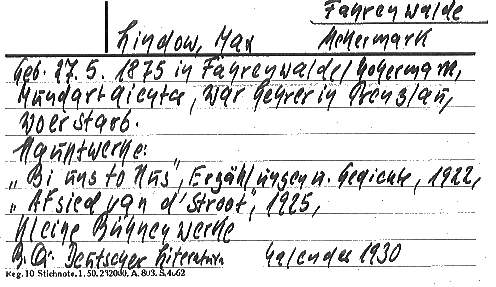 Fahrenwalde
Lindow, Max Uckermark
Geb. 27. 5. 1875 in Fahrenwalde/Uckermark,
Mundartdichter, war Lehrer in Prenzlau,
wo er starb.
Hauptwerke:
„Bi uns to Hus", Erzählungen u. Gedichte, 1922,
„Afsied van d' Stroot", 1925,
Kleine Bühnenwerke
B. Qu: Deutscher Literatur Kalender 1930
Reg. 10 Stichnote. 1. 50. 232000, A. 803. S. 4.62